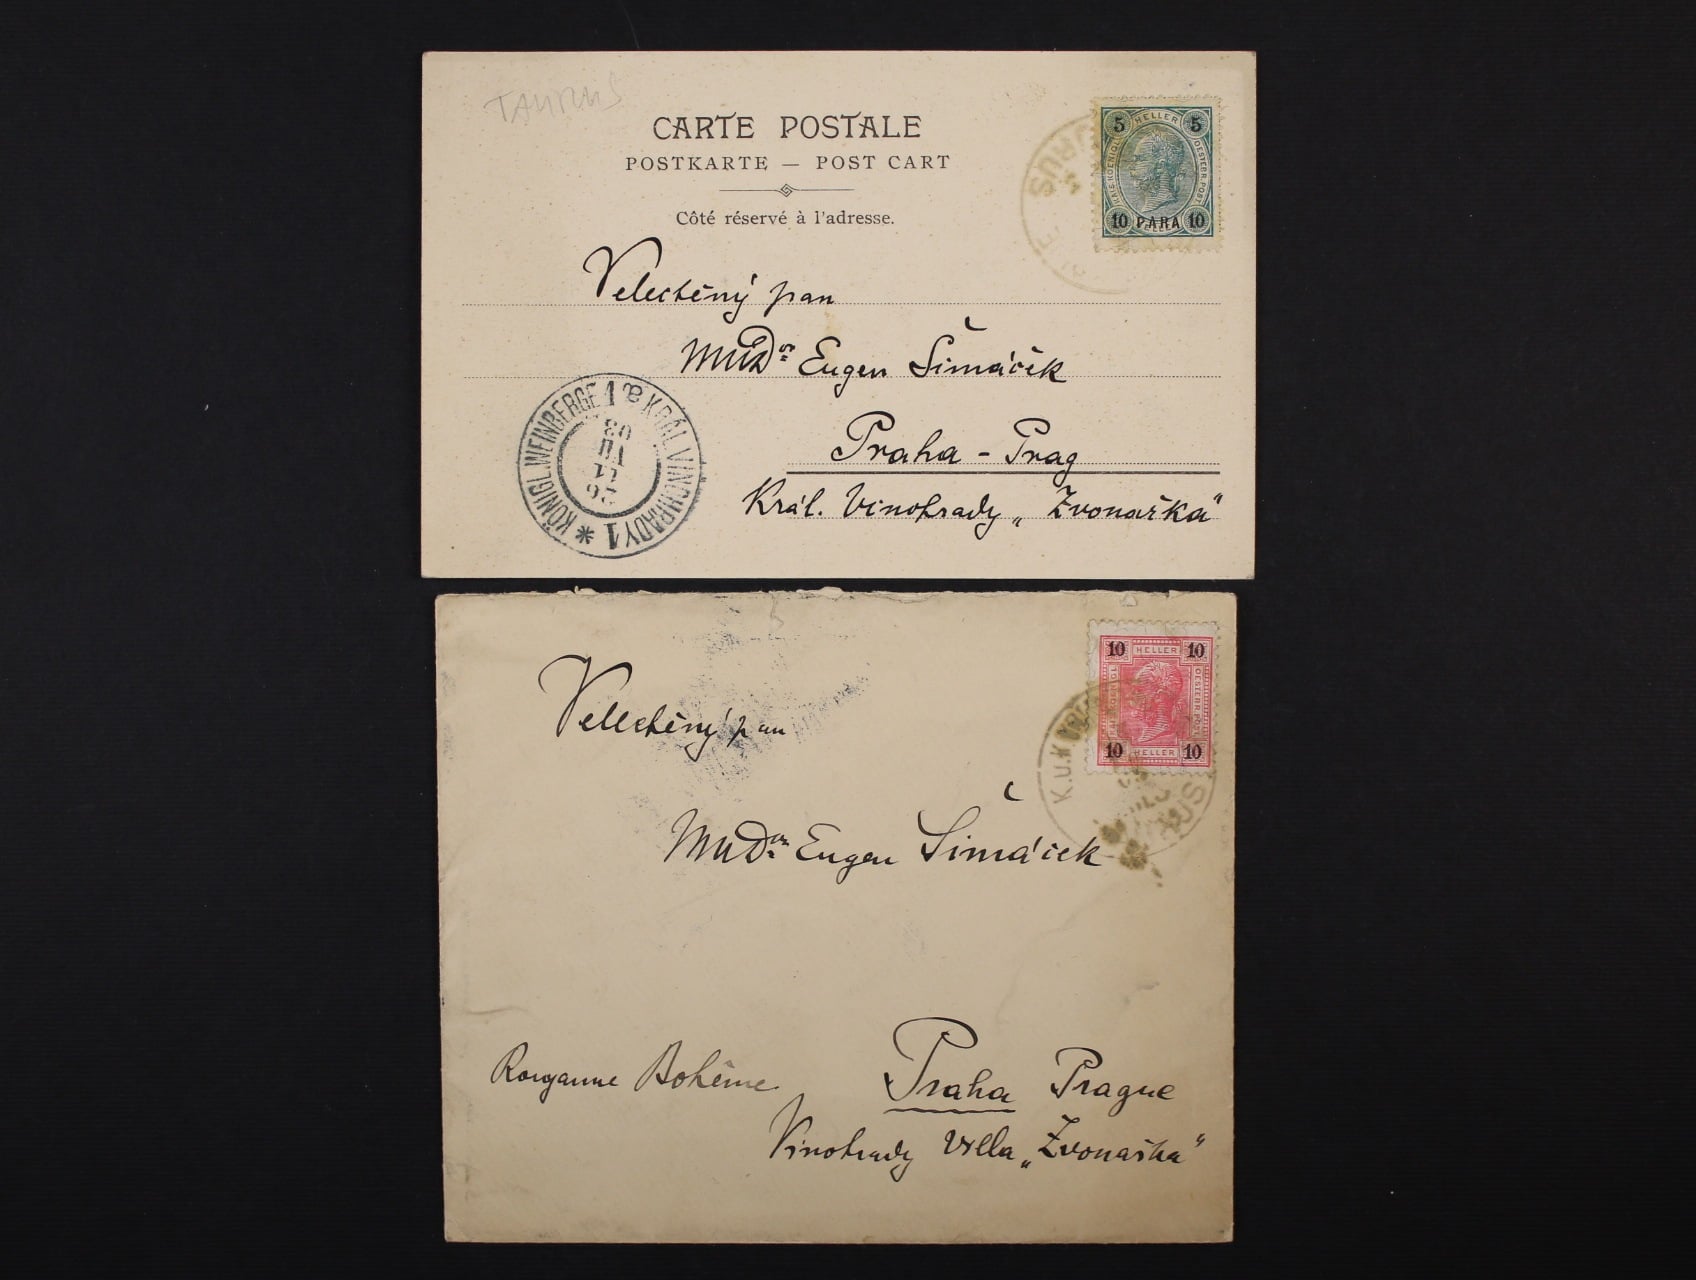 TAURUS
CARTE POSTALE
POSTKARTE — POST CART
Côté réservé à l'adresse.
5 HELLER 5
KAIS. KOENIGL. OESTERR. POST
10 PARA 10
URUS
Velectěný pan
MUDr Eugen Šimáček
Praha - Prag
Král. Vinohrady „Zvonařka“
KÖNIGL. WEINBERGE 1 KRÁL. VINOHRADY 1
26
VII
03
10 HELLER 10
KAIS. KOENIGL. OESTERR. POST
10 HELLER 10
K.u.K
US
Velectěný pan
MUDr Eugen Šimáček
Bohême
Praha Prague
Vinohrady Villa „Zvonařka“